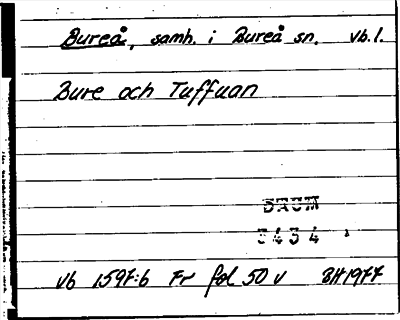 Bureå, samh. i Bureå sn. Vb. l.
Bure och Tuffuan
DAUM
3434
Vb 1597:6 Fr fol 50 v BH 1977